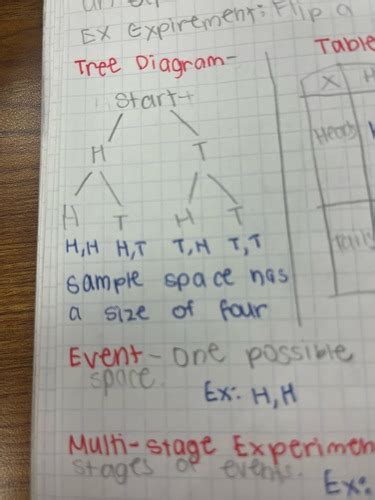 EX Expirement: Flip a
Tree Diagram-
Start
H T
H T H T
H,H H,T T,H T,T
sample space has
a size of four
Event - One possible
space.
Ex: H,H
Multi-stage Experimen
stages of events.
Ex:
Table
X H
Heads
Tails